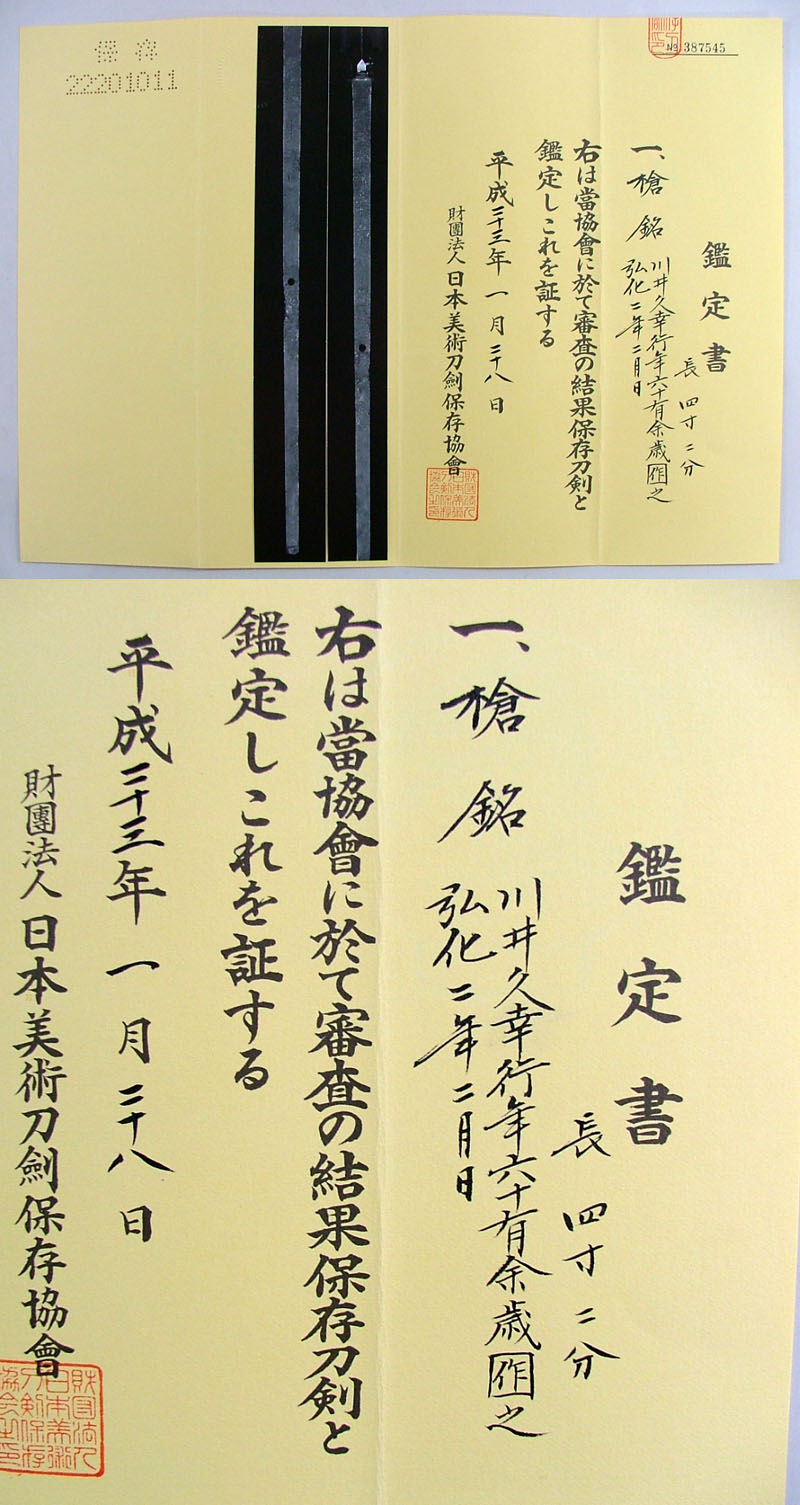 保存
22201011
№ 387545
鑑定書
長 四寸二分
一、槍 銘 川井久幸行年六十有余歳作之
弘化二年二月日
右は當協會に於て審査の結果保存刀剣と
鑑定しこれを証する
平成二十三年 一月 二十八日
財團法人 日本美術刀劍保存協會
財団法人日本美術刀剣保存協会之印
鑑定書
長 四寸二分
一、槍 銘 川井久幸行年六十有余歳作之
弘化二年二月日
右は當協會に於て審査の結果保存刀剣と
鑑定しこれを証する
平成二十三年 一月 二十八日
財團法人 日本美術刀劍保存協會